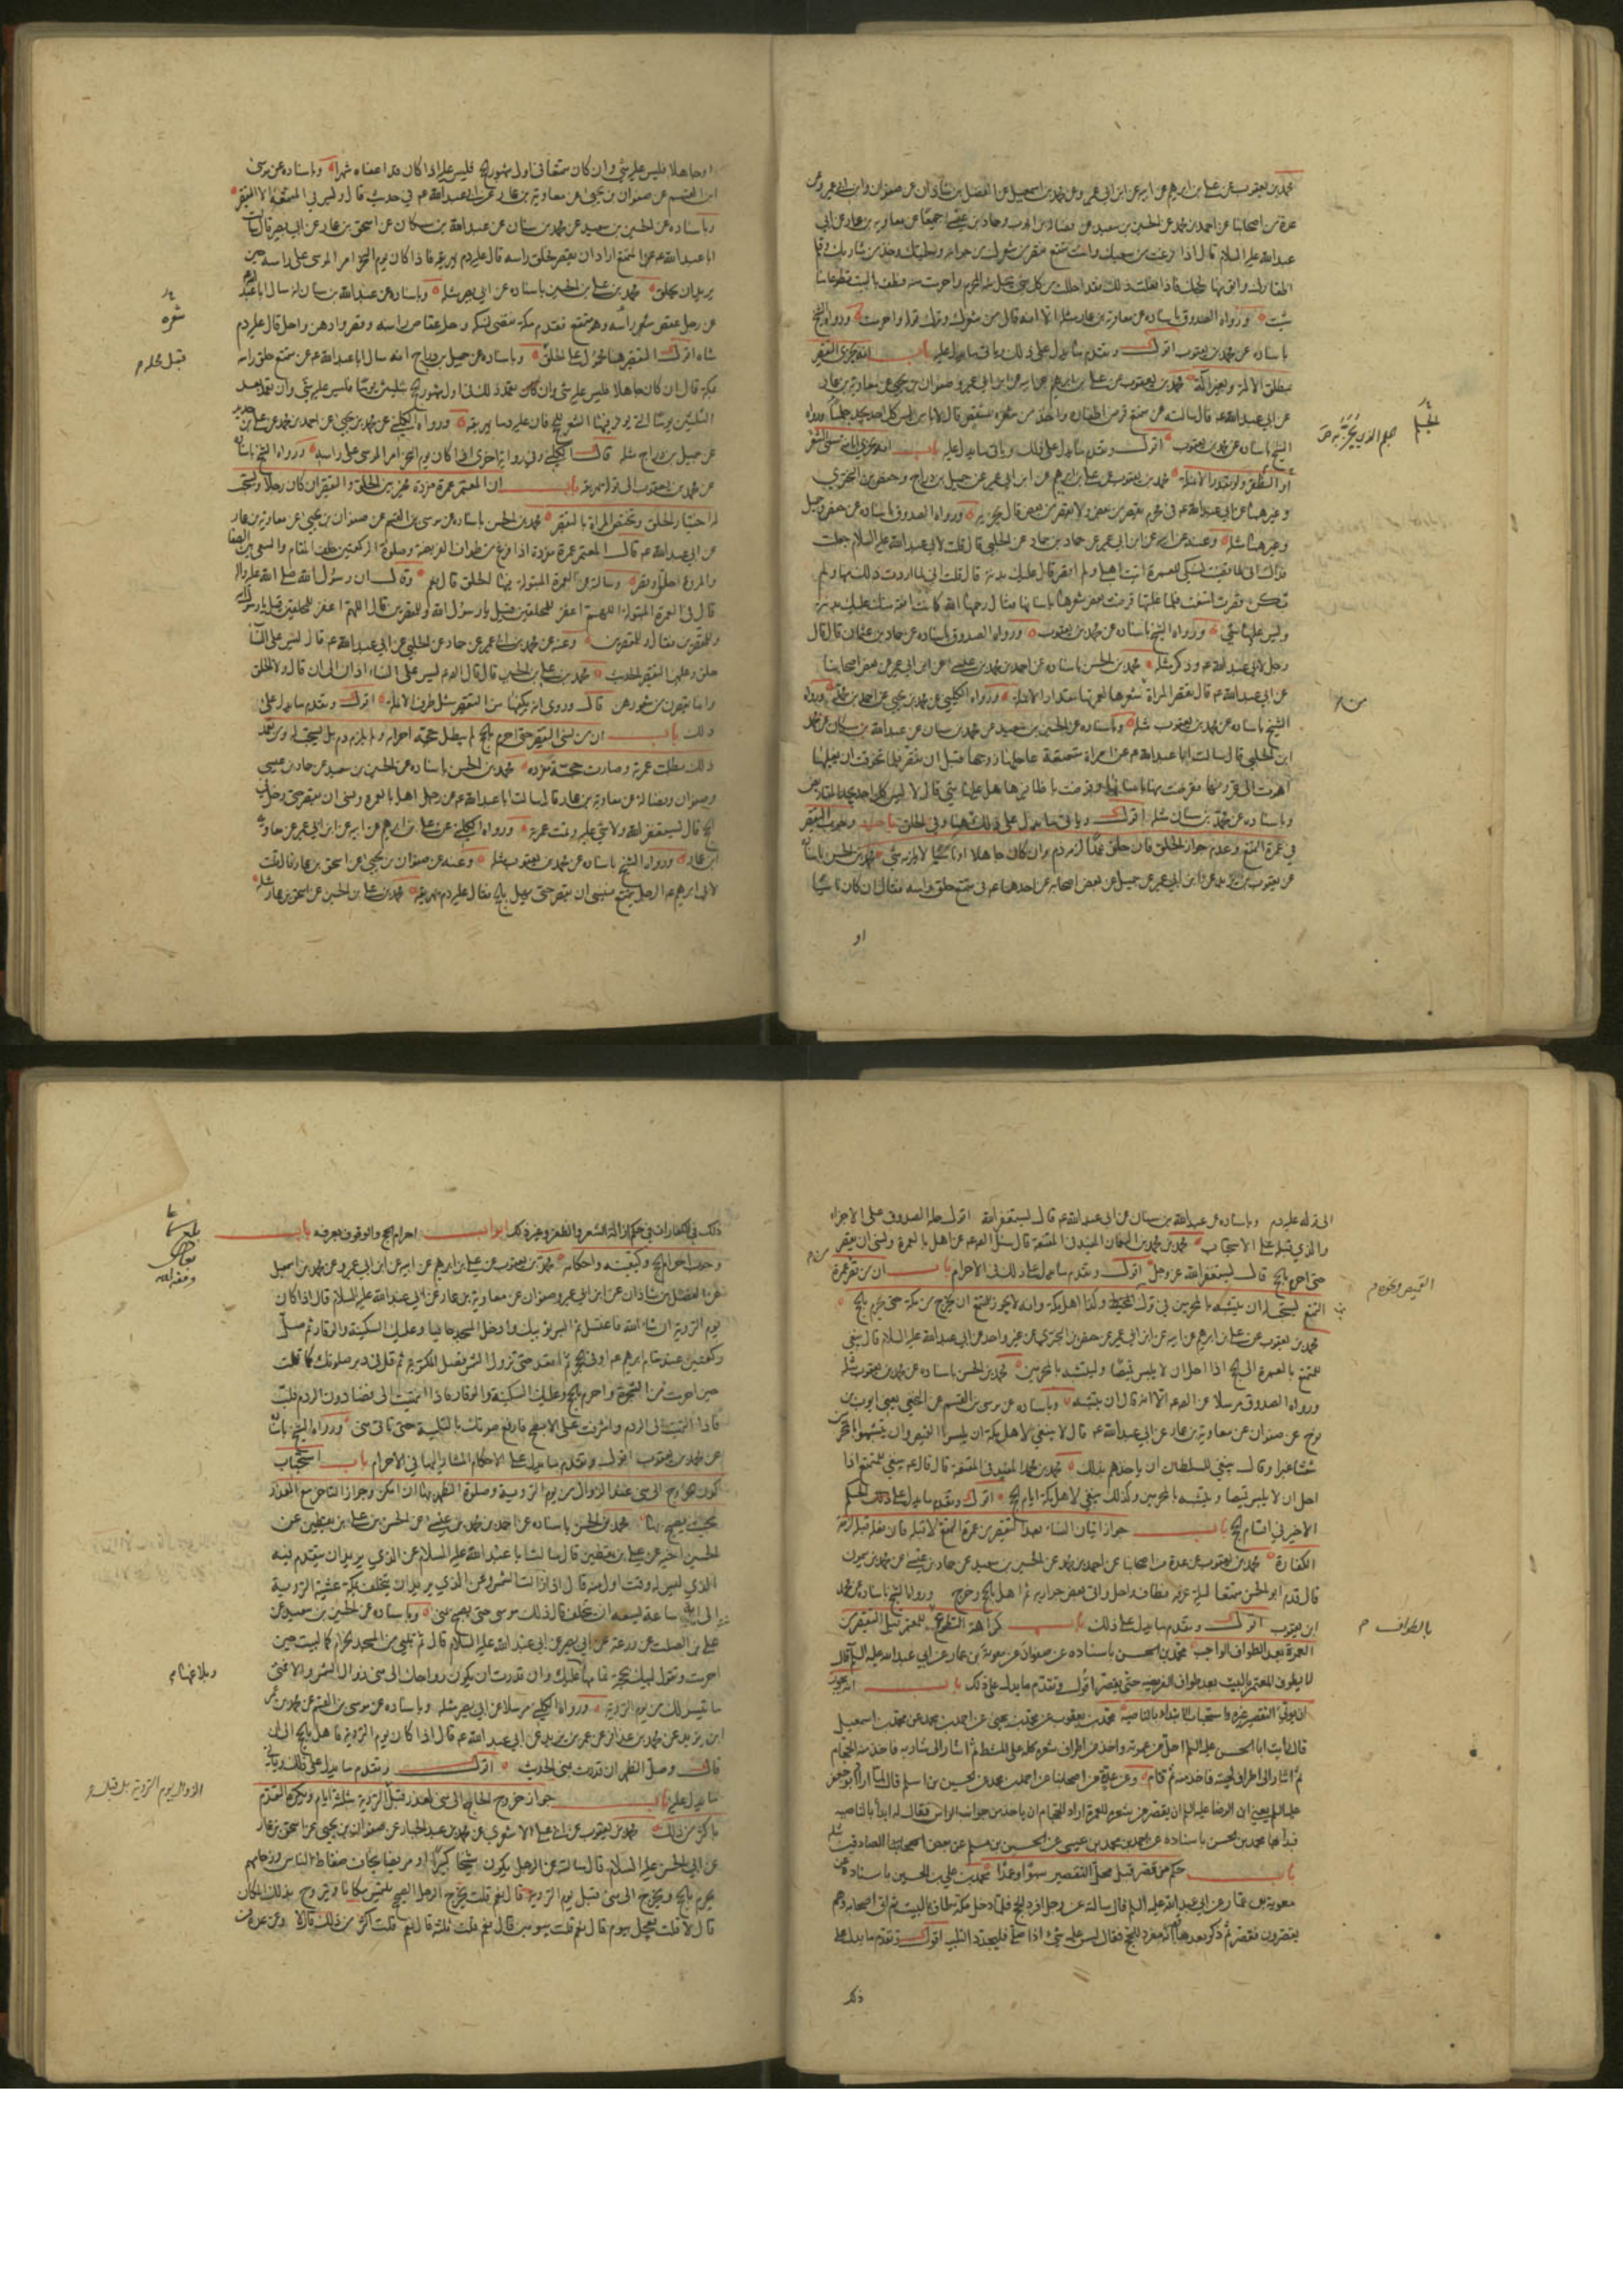 محمد بن يعقوب عن علي بن ابرهيم عن ابيه عن ابن ابي عمير وعن محمد بن اسمعيل عن الفضل بن شاذان عن صفوان وابن ابي عمير وعن
عدة من اصحابنا عن احمد بن محمد عن الحسين بن سعيد عن فضالة بن ايوب وحماد بن عيسى جميعا عن معاوية بن عمار عن ابي
عبد الله عليه السلام قال اذا فرغت من سعيك وانت متمتع فقصر من شعرك من جوانبه ولحيتك وخذ من شاربك وقلم
اظفارك وابق منها لحجك فاذا فعلت ذلك فقد احللت من كل شئ يحل منه المحرم واحرمت منه فطف بالبيت تطوعا ما
شئت ورواه الصدوق باسناده عن معاوية بن عمار مثله الا انه قال من شعرك وترك قوله واحرمت ورواه الشيخ
باسناده عن محمد بن يعقوب اقول وتقدم ما يدل على ذلك وياتي ما يدل عليه باب انه يجزي التقصير
بمطلق الالة وبغير آلة محمد بن يعقوب عن علي بن ابرهيم عن ابيه عن ابن ابي عمير وصفوان بن يحيى عن معاوية بن عمار
عن ابي عبد الله ع قال سالته عن متمتع قرض اظفاره واخذ من شعره بمشقص قال لا باس ليس كل احد يجد جلما ورواه
الشيخ باسناده عن محمد بن يعقوب اقول وتقدم ما يدل على ذلك وياتي ما يدل عليه باب انه يجزي ابانة مسمى الشعر
او الظفر ولو بقدر الانملة محمد بن يعقوب عن علي بن ابرهيم عن ابيه عن ابن ابي عمير عن جميل بن دراج وحفص بن البختري
وغيرهما عن ابي عبد الله ع في محرم يقصر من بعض ولا يقصر من بعض قال يجزيه ورواه الصدوق باسناده عن حفص وجميل
وغيرهما مثله وعنه عن ابيه عن ابن ابي عمير عن حماد بن عثمان عن الحلبي قال قلت لابي عبد الله عليه السلام جعلت
فداك اني لما قضيت نسكي للعمرة اتيت اهلي ولم اقصر قال عليك بدنة قال قلت اني لما اردت ذلك منها ولم
تكن قصرت امتنعت فلما غلبتها قرضت بعض شعرها باسنانها فقال رحمها الله كانت افقه منك عليك بدنة
وليس عليها شئ ورواه الشيخ باسناده عن محمد بن يعقوب ورواه الصدوق باسناده عن حماد بن عثمان قال قال
رجل لابي عبد الله ع وذكر مثله محمد بن الحسن باسناده عن احمد بن محمد بن عيسى عن ابن ابي عمير عن بعض اصحابنا
عن ابي عبد الله ع قال تقصر المراة شعرها لعمرتها مقدار الانملة ورواه الكليني عن محمد بن يحيى عن احمد بن محمد ورواه
الشيخ باسناده عن محمد بن يعقوب مثله وباسناده عن الحسين بن سعيد عن محمد بن سنان عن عبد الله بن مسكان عن محمد
ابن الحلبي قال سالت ابا عبد الله ع عن امراة متمتعة عاجلها زوجها قبل ان تقصر فلما تخوفت ان يغلبها
اهوت الى قرونها فقرضت منها باسنانها وقرضت باظافيرها هل عليها شئ قال لا ليس كل احد يجد المقاريض
وباسناده عن محمد بن سنان مثله اقول وياتي ما يدل على ذلك هنا وفي الحلق باب وجوب التقصير
في عمرة التمتع وعدم جواز الحلق فان حلق عمدا لزمه دم وان كان جاهلا او ناسيا لا يلزمه شئ محمد بن الحسن باسناده
عن يعقوب بن يزيد عن ابن ابي عمير عن جميل عن بعض اصحابه عن احدهما ع في متمتع حلق راسه فقال ان كان ناسيا
او
من
او جاهلا فليس عليه شئ وان كان متمتعا في اول شهور الحج فليس عليه اذا كان قد اعفاه شهرا وباسناده عن موسى
ابن القسم عن صفوان بن يحيى عن معاوية بن عمار عن ابي عبد الله ع في حديث قال وليس في المتعة الا التقصير
وباسناده عن الحسين بن سعيد عن محمد بن سنان عن عبد الله بن مسكان عن اسحق بن عمار عن ابي بصير قال سالت
ابا عبد الله ع عن المتمتع اراد ان يقصر فحلق راسه قال عليه دم يهريقه فاذا كان يوم النحر امر الموسى على راسه حين
يريد ان يحلق محمد بن علي بن الحسين باسناده عن ابي بصير مثله وباسناده عن عبد الله بن سنان انه سال ابا عبد الله
عن رجل عقص شعر راسه وهو متمتع فقدم مكة فقضى نسكه وحل عقاص راسه وقصر وادهن واحل قال عليه دم
شاة اقول التقصير هنا محمول على الحلق وباسناده عن جميل بن دراج انه سال ابا عبد الله ع عن متمتع حلق راسه
بمكة قال ان كان جاهلا فليس عليه شئ وان كان تعمد ذلك في اول شهور الحج بثلثين يوما فليس عليه شئ وان تعمد بعد
الثلثين يوما التي يوفر فيها الشعر للحج فان عليه دما يهريقه ورواه الكليني عن محمد بن يحيى عن احمد بن محمد عن علي بن حديد
عن جميل بن دراج مثله قال الكليني وفي رواية اخرى اذا كان يوم النحر امر الموسى على راسه ورواه الشيخ باسناده
عن محمد بن يعقوب الى قوله يهريقه باب ان المعتمر عمرة مفردة مخير بين الحلق والتقصير ان كان رجلا ويستحب
له اختيار الحلق وتختص المراة بالتقصير محمد بن الحسن باسناده عن موسى بن القسم عن صفوان بن يحيى عن معاوية بن عمار
عن ابي عبد الله ع قال المعتمر عمرة مفردة اذا فرغ من طواف الفريضة وصلوة الركعتين خلف المقام والسعي بين الصفا
والمروة حلق او قصر وسالته عن العمرة المبتولة فيها الحلق قال نعم وقال ان رسول الله صلى الله عليه واله
قال في العمرة المبتولة اللهم اغفر للمحلقين فقيل يا رسول الله وللمقصرين قال اللهم اغفر للمحلقين فقيل يا رسول الله
وللمقصرين فقال وللمقصرين وعنه عن محمد بن ابي عمير عن حماد عن الحلبي عن ابي عبد الله ع قال ليس على النساء
حلق وعليهن التقصير الحديث محمد بن علي بن الحسين قال قال ع ليس على النساء اذان الى ان قال ولا الحلق
وانما يقصرن من شعورهن قال وروي انه يكفيها من التقصير مثل طرف الانملة اقول وتقدم ما يدل على
ذلك باب ان من نسى التقصير حتى احرم بالحج لم يبطل حجه احرامه ولم يلزمه دم بل يستحب له ومن تعمد
ذلك بطلت عمرته وصارت حجته مفردة محمد بن الحسن باسناده عن الحسين بن سعيد عن حماد بن عيسى
وصفوان وفضالة عن معاوية بن عمار قال سالت ابا عبد الله ع عن رجل اهل بالعمرة ونسى ان يقصر حتى دخل في
الحج قال يستغفر الله ولا شئ عليه وتمت عمرته ورواه الكليني عن علي بن ابرهيم عن ابيه عن ابن ابي عمير عن معاوية
ابن عمار ورواه الشيخ باسناده عن محمد بن يعقوب مثله وعنه عن صفوان بن يحيى عن اسحق بن عمار قال قلت
لابي ابرهيم ع الرجل يتمتع فينسى ان يقصر حتى يهل بالحج فقال عليه دم يهريقه محمد بن علي بن الحسين عن اسحق بن عمار مثله
شعره
الى قوله عليه دم وباسناده عن عبد الله بن سنان عن ابي عبد الله ع قال يستغفر الله اقول حمله الصدوق على الاجزاء
والذي قبله على الاستحباب محمد بن محمد بن النعمان المفيد في المقنعة قال سئل ع عن اهل بالعمرة ونسى ان يقصر
حتى احرم بالحج قال يستغفر الله عز وجل اقول وتقدم ما يدل على ذلك في الاحرام باب ان من قصر عمرة
التمتع يستحب له ان يتشبه بالمحرمين في ترك المخيط وكذا اهل مكة وانه لا يجوز للمتمتع ان يخرج من مكة حتى يحرم بالحج
محمد بن يعقوب عن علي بن ابرهيم عن ابيه عن ابن ابي عمير عن حفص بن البختري عن غير واحد عن ابي عبد الله عليه السلام قال ينبغي
للمتمتع بالعمرة الى الحج اذا احل ان لا يلبس قميصا وليتشبه بالمحرمين محمد بن الحسن باسناده عن محمد بن يعقوب مثله
ورواه الصدوق مرسلا عن ع الا انه قال ان يتشبه وباسناده عن موسى بن القسم عن النخعي يعني ايوب بن
نوح عن صفوان عن معاوية بن عمار عن ابي عبد الله ع قال لا ينبغي لاهل مكة ان يلبسوا القميص وان يتشبهوا بالمحرمين
شعثا غبرا وقال ينبغي للسلطان ان ياخذهم بذلك محمد بن محمد المفيد في المقنعة قال قال ع ينبغي للمتمتع اذا
احل ان لا يلبس قميصا ويتشبه بالمحرمين وكذلك ينبغي لاهل مكة ايام الحج اقول وتقدم ما يدل على ذلك الحكم
الاخير في اقسام الحج باب جواز اتيان النساء بعد التقصير من عمرة التمتع لا قبله فان فعله قبله لزمه
الكفارة محمد بن يعقوب عن عدة من اصحابنا عن احمد بن محمد عن الحسين بن سعيد عن حماد بن عيسى عن محمد بن ميمون
قال قدم ابو الحسن متمتعا ليلة عرفة فطاف واحل واتى بعض جواريه ثم اهل بالحج وخرج ورواه الشيخ باسناده عن محمد
ابن يعقوب اقول وتقدم ما يدل على ذلك باب كراهة التطوع للمعتمر قبل التقصير من
العمرة بعد الطواف الواجب محمد بن الحسن باسناده عن صفوان عن معوية بن عمار عن ابي عبد الله عليه السلم قال
لا يطوف المعتمر بالبيت بعد طواف الفريضة حتى يقصر اقول وتقدم ما يدل على ذلك باب انه يجوز
ان يولي التقصير غيره واستحباب الابتداء بالناصية محمد بن يعقوب عن محمد بن يحيى عن احمد بن محمد عن محمد بن اسمعيل
قال رايت ابا الحسن عليه السلم احل من عمرته واخذ من اطراف شعره كله على المشط ثم اشار الى شاربه فاخذ منه الحجام
ثم اشار الى اطراف لحيته فاخذ منه ثم قام وعن عدة من اصحابنا عن احمد بن محمد عن الحسين بن اسلم قال لما اراد ابو جعفر
عليه السلم يعني ابن الرضا عليه السلم ان يقصر من شعره للعمرة اراد الحجام ان ياخذ من جوانب الراس فقال له ابدا بالناصية
فبدا بها محمد بن الحسن باسناده عن احمد بن محمد بن عيسى عن الحسين بن مسلم عن بعض اصحابنا الصادقين مثله
باب حكم من قصر قبل محل التقصير سهوا وعمدا محمد بن علي بن الحسين باسناده عن
معوية بن عمار عن ابي عبد الله عليه السلم قال سالته عن رجل افرد الحج فلما دخل مكة طاف بالبيت ثم اتى اصحابه وهم
يقصرون فقصر ثم ذكر بعد ما قصر انه مفرد للحج فقال ليس عليه شئ اذا صلى فليجدد التلبية اقول وتقدم ما يدل على
ذلك
بالطواف
ذلك في الكفارات في حكم ازالة الشعر والظفر وغير ذلك ابواب احرام الحج والوقوف بعرفه باب
وجوب احرام الحج وكيفيته واحكامه محمد بن يعقوب عن علي بن ابرهيم عن ابيه عن ابن ابي عمير وعن محمد بن اسمعيل
عن الفضل بن شاذان عن ابن ابي عمير وصفوان عن معاوية بن عمار عن ابي عبد الله عليه السلام قال اذا كان
يوم التروية ان شاء الله فاغتسل ثم البس ثوبيك وادخل المسجد حافيا وعليك السكينة والوقار ثم صل
ركعتين عند مقام ابرهيم ع او في الحجر ثم اقعد حتى تزول الشمس فصل المكتوبة ثم قل في دبر صلوتك كما قلت
حين احرمت من الشجرة واحرم بالحج وعليك السكينة والوقار فاذا انتهيت الى فضاء دون الردم فلب
فاذا انتهيت الى الردم واشرفت على الابطح فارفع صوتك بالتلبية حتى تاتي منى ورواه الشيخ باسناده
عن محمد بن يعقوب اقول وتقدم ما يدل على الاحكام المشار اليها في الاحرام باب استحباب
كون الخروج الى منى عند الزوال من يوم التروية وصلوة الظهر بها ان امكن وجواز التاخير مع العذر
بحيث يصبح بها محمد بن الحسن باسناده عن احمد بن محمد بن عيسى عن الحسن بن علي بن يقطين عن
الحسين اخيه عن علي بن يقطين قال سالت ابا عبد الله عليه السلام عن الذي يريد ان يتقدم فيه
الذي ليس له وقت اول منه قال اذا زالت الشمس وعن الذي يريد ان يتخلف بمكة عشية التروية
الى اية ساعة يسعه ان يتخلف قال ذلك موسع حتى يصبح بمنى وباسناده عن الحسين بن سعيد عن
علي بن الصلت عن زرعة عن ابي بصير عن ابي عبد الله عليه السلام قال ثم تلبي من المسجد الحرام كما لبيت حين
احرمت وتقول لبيك بحجة تمامها عليك وان قدرت ان يكون رواحك الى منى زوال الشمس والا فمتى
ما تيسر لك من يوم التروية ورواه الكليني مرسلا عن ابي بصير مثله وباسناده عن موسى بن القسم عن محمد بن عمر
ابن يزيد عن محمد بن عذافر عن عمر بن يزيد عن ابي عبد الله ع قال اذا كان يوم التروية فاهل بالحج الى ان
قال وصل الظهر ان قدرت بمنى الحديث اقول وتقدم ما يدل على ذلك وياتي
ما يدل عليه باب جواز خروج الحاج الى منى لعذر قبل التروية بثلثة ايام ويكره التقدم
باكثر من ذلك محمد بن يعقوب عن ابي علي الاشعري عن محمد بن عبد الجبار عن صفوان بن يحيى عن اسحق بن عمار
عن ابي الحسن عليه السلام قال سالته عن الرجل يكون شيخا كبيرا او مريضا يخاف ضغاط الناس وزحامهم
يحرم بالحج ويخرج الى منى قبل يوم التروية قال نعم قلت يخرج الرجل الصحيح يلتمس مكانا ويتروح بذلك المكان
قال لا قلت يعجل بيوم قال نعم قلت بيومين قال نعم قلت ثلثة قال نعم قلت اكثر من ذلك قال لا وعن عدة من